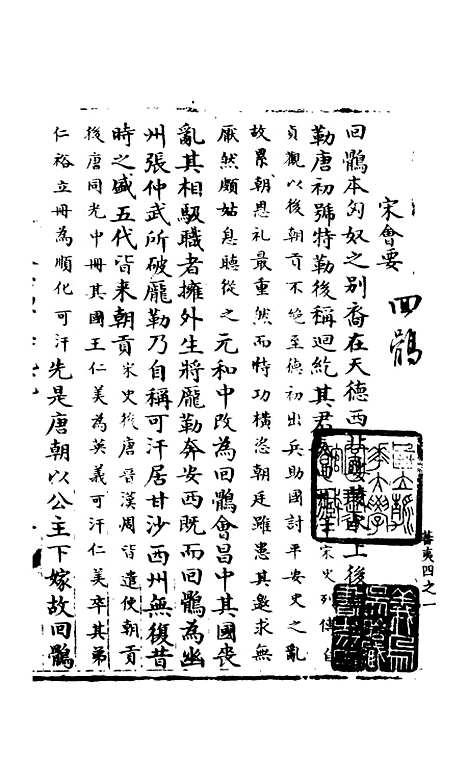 蕃夷四之一
宋會要
回鶻
回鶻本匈奴之別裔在天德西上後
勒唐初號特勒後稱迴紇其君宋史列傳自
貞觀以後朝貢不絶至德初出兵助國討平安史之亂
故累朝恩礼最重然而特功橫恣朝廷雖患其邀求無
厭然頗姑息聽從之元和中改為回鶻會昌中其國喪
亂其相馺職者擁外生將龐勒奔安西既而回鶻為幽
州張仲武所破龐勒乃自稱可汗居甘沙西州無復昔
時之盛五代皆來朝貢宋史後唐晉漢周皆遣使朝貢
後唐同光中冊其國王仁美為英義可汗仁美卒其弟
仁裕立冊為順化可汗先是唐朝以公主下嫁故回鶻